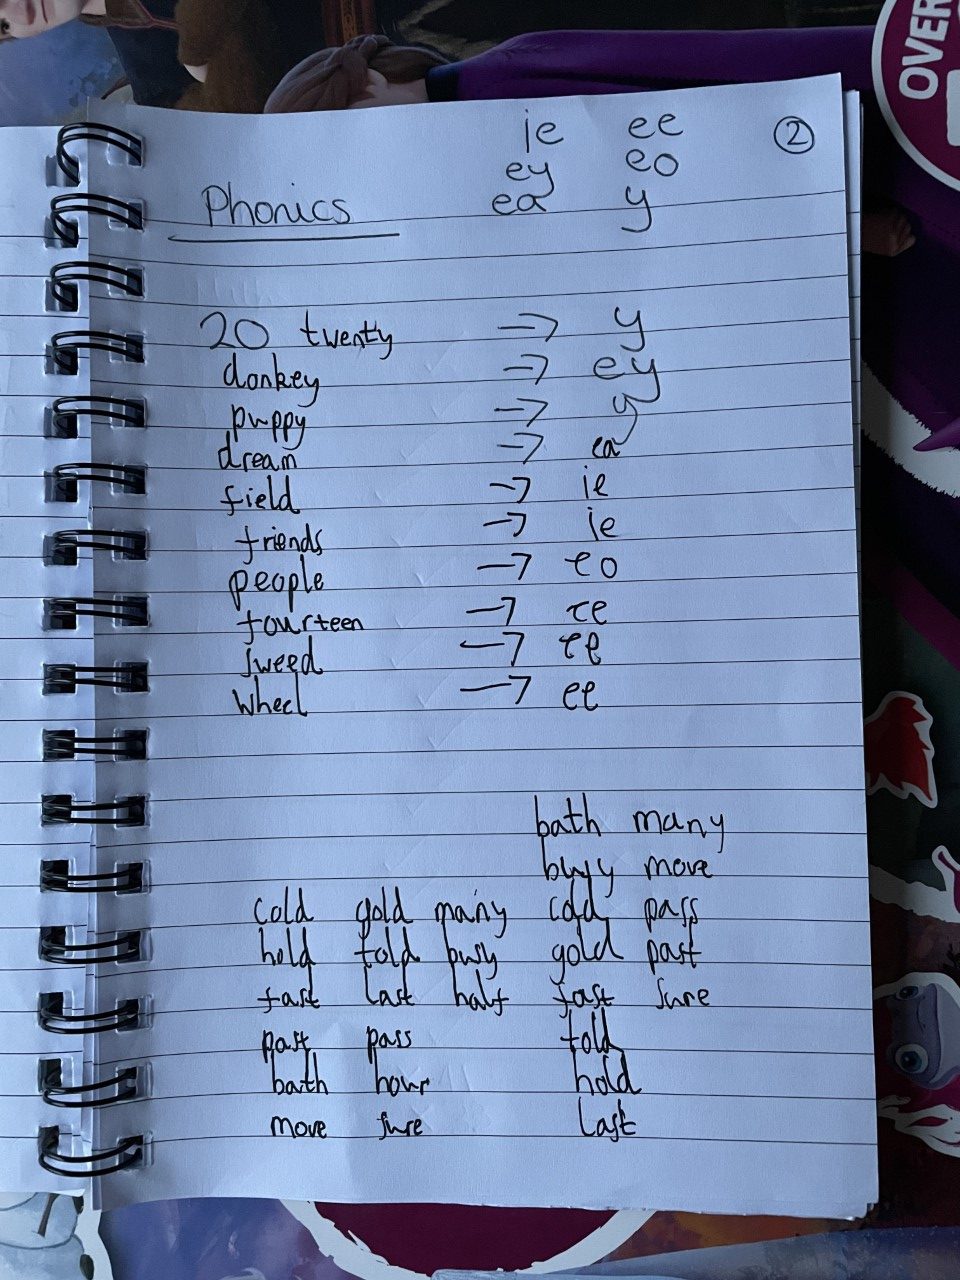 OVER
ie ee
②
ey eo
Phonics ea y
20 twenty → y
donkey → ey
puppy → y
dream → ea
field → ie
friends → ie
people → eo
fourteen → ee
sweed → ee
wheel → ee
bath many
busy move
cold gold many cold pass
hold told busy gold past
fast last half fast sure
past pass told
bath hour hold
move sure last